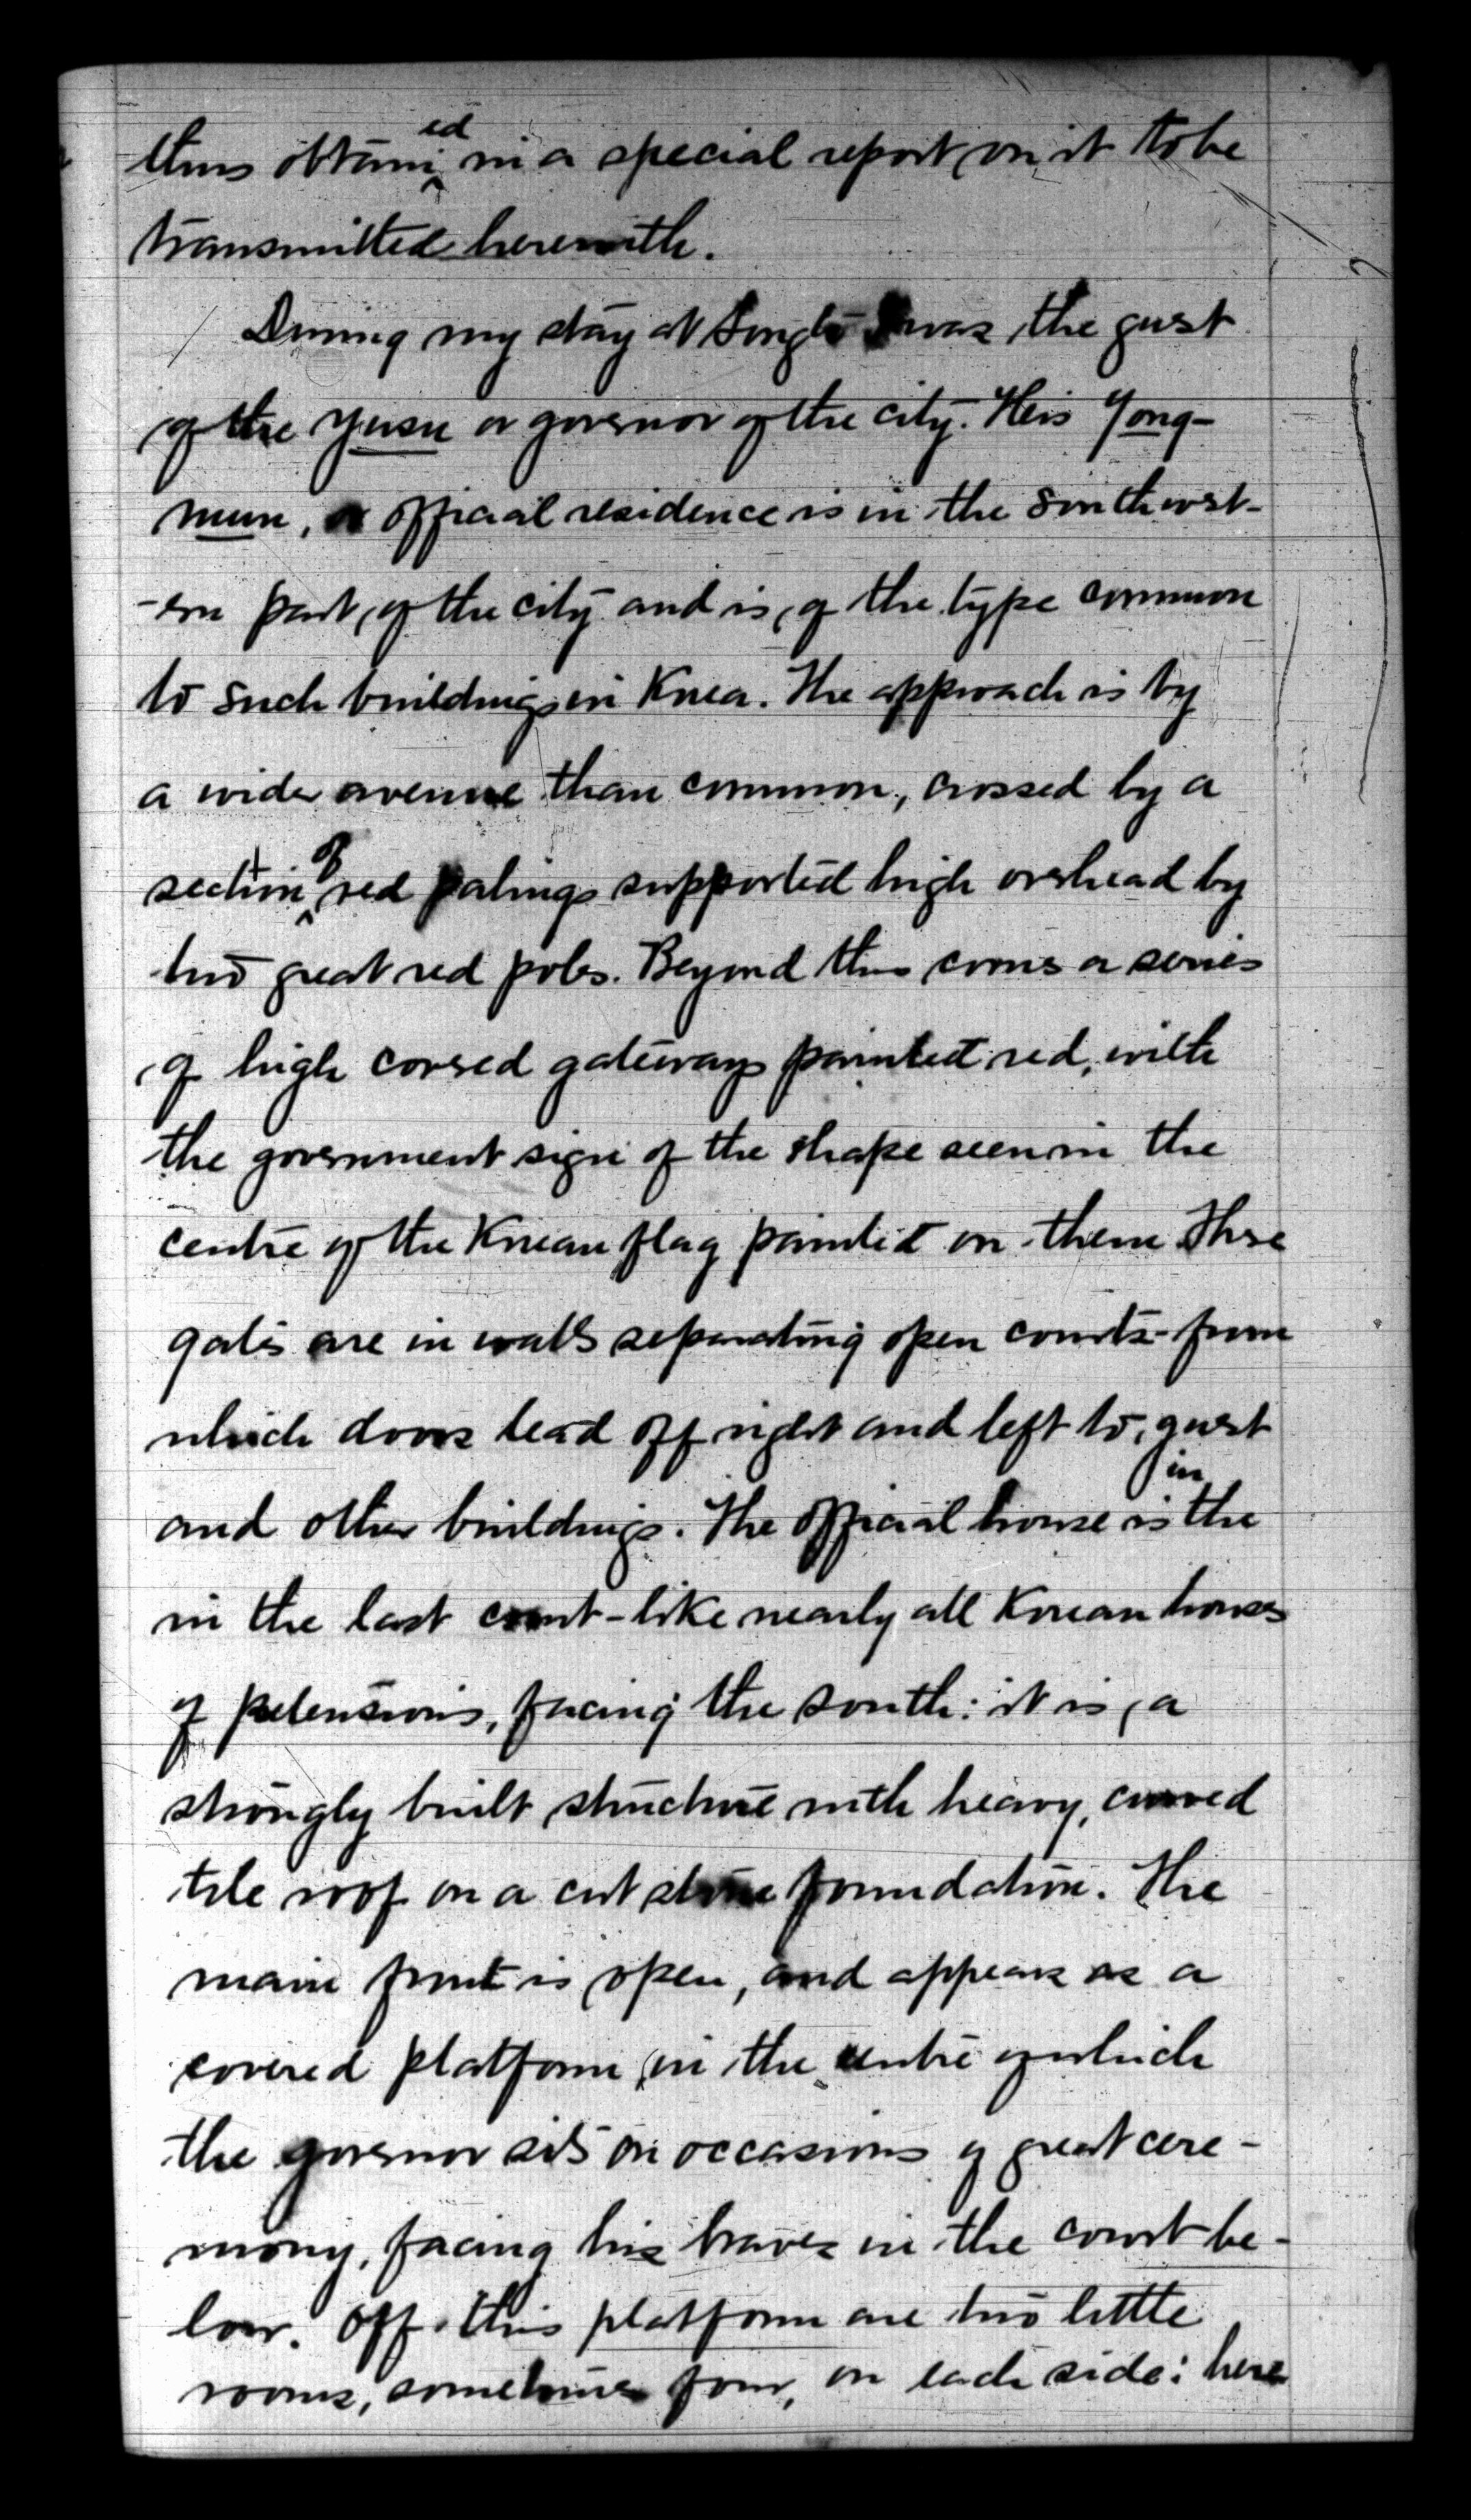 thus obtained in a special report on it to be
transmitted herewith.
During my stay at Songto I was the guest
of the Yusu or governor of the city. His Yong-
mun, or official residence is in the southwest-
-ern part of the city and is of the type common
to such buildings in Korea. The approach is by
a wider avenue than common, crossed by a
section of red palings supported high overhead by
two great red poles. Beyond this comes a series
of high covered gateways painted red, with
the government sign of the shape seen in the
centre of the Korean flag painted on them. These
gates are in walls separating open courts from
which doors lead off right and left to guest
and other buildings. The official house is in the
in the last court - like nearly all Korean houses
of pretensions, facing the south: it is a
strongly built structure with heavy, curved
tile roof on a cut stone foundation. The
main front is open, and appears as a
covered platform in the centre of which
the governor sits on occasions of great cere-
mony, facing his braves in the court be-
low. Off this platform are two little
rooms, sometimes four, on each side: here